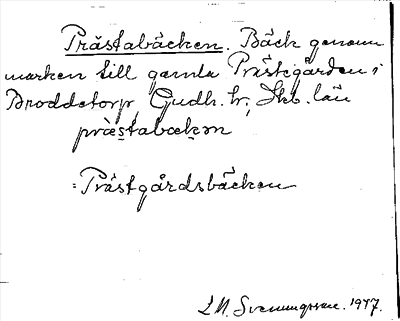 Prästabäcken. Bäck genom
marken till gamla Prästgården i
Broddetorp Gudh. hr; Skb. län
præstabækən
= Prästgårdsbäcken
L M. Svenungsson. 1947.